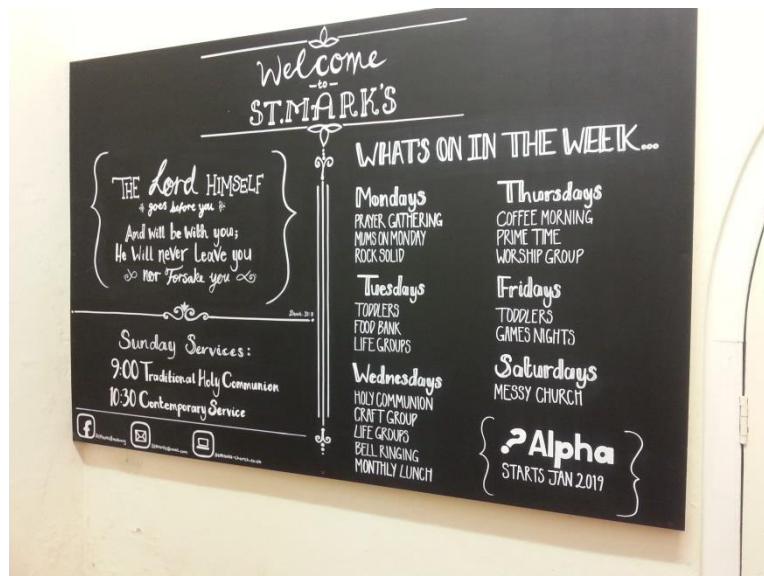 Welcome
to
ST. MARK'S
THE Lord HIMSELF
goes before you
And will be with you;
He will never leave you
nor Forsake you
Sunday Services:
9:00 Traditional Holy Communion
10:30 Contemporary Service
WHAT'S ON IN THE WEEK...
Mondays
PRAYER GATHERING
MUMS ON MONDAY
ROCK SOLID
Tuesdays
TODDLERS
FOOD BANK
LIFE GROUPS
Wednesdays
HOLY COMMUNION
CRAFT GROUP
LIFE GROUPS
BELL RINGING
MONTHLY LUNCH
Thursdays
COFFEE MORNING
PRIME TIME
WORSHIP GROUP
Fridays
TODDLERS
GAMES NIGHTS
Saturdays
MESSY CHURCH
? Alpha
STARTS JAN 2019